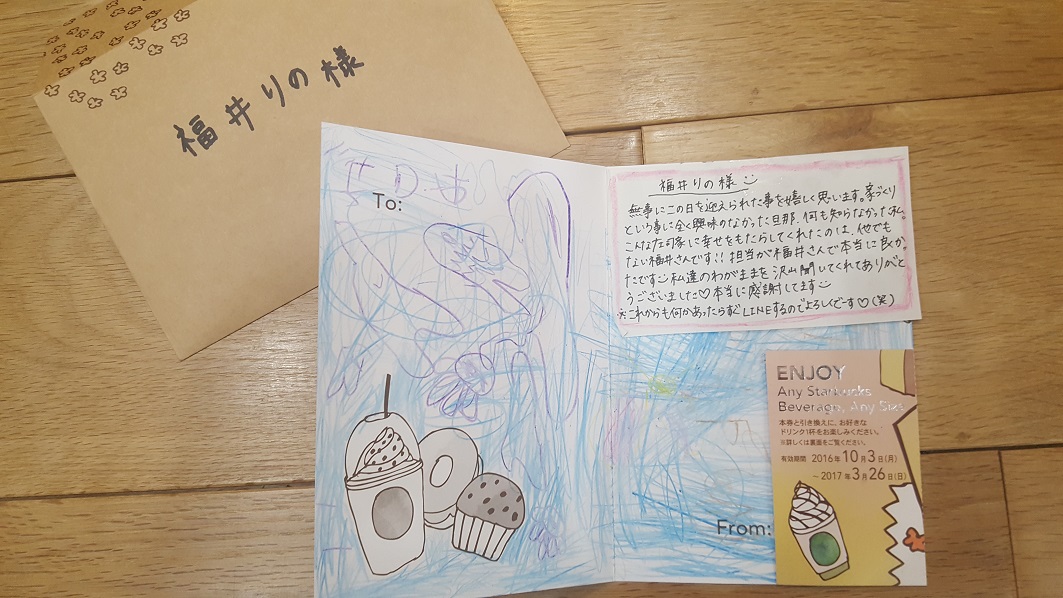 福井りの様
To:
福井りの様
無事にこの日を迎えられた事を嬉しく思います。家づくり
という事に全く興味のなかった旦那、何も知らなかった私。
こんな庄司家に幸せをもたらしてくれたのは、他でも
ない福井さんです!!担当が福井さんで本当に良か
たです 私達のわがままを沢山聞いてくれてありがと
うございました♡本当に感謝してます
※これからも何かあったらすぐLINEするのでよろしくです♡(笑)
ENJOY
Any Starbucks
Beverage, Any Size
本券と引き換えに、お好きな
ドリンク1杯をお楽しみください。
※詳しくは裏面をご覧ください。
有効期間 2016年10月3日(月)
～2017年3月26日(日)
From: